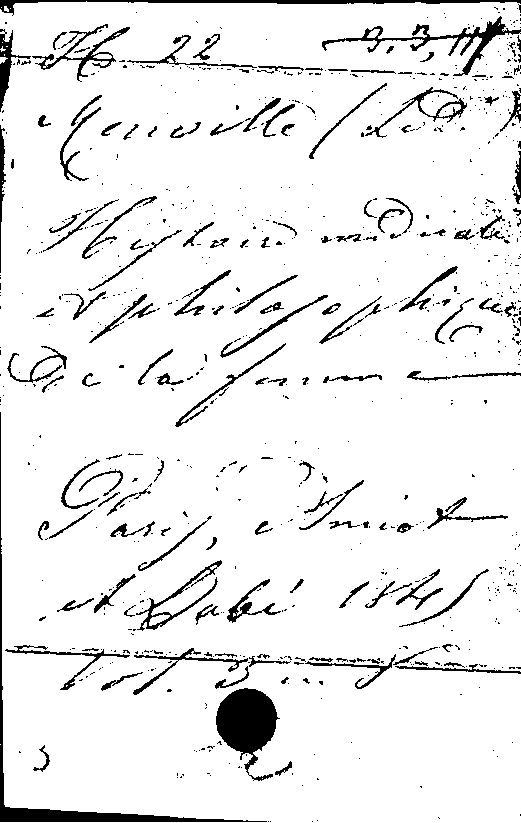 H. 22 3. 3, 111
Menville (Ls D.)
Histoire médicale
et philosophique
De la femme
Paris, Amiot
et Labé 1845
Vol. 3 in 8
2